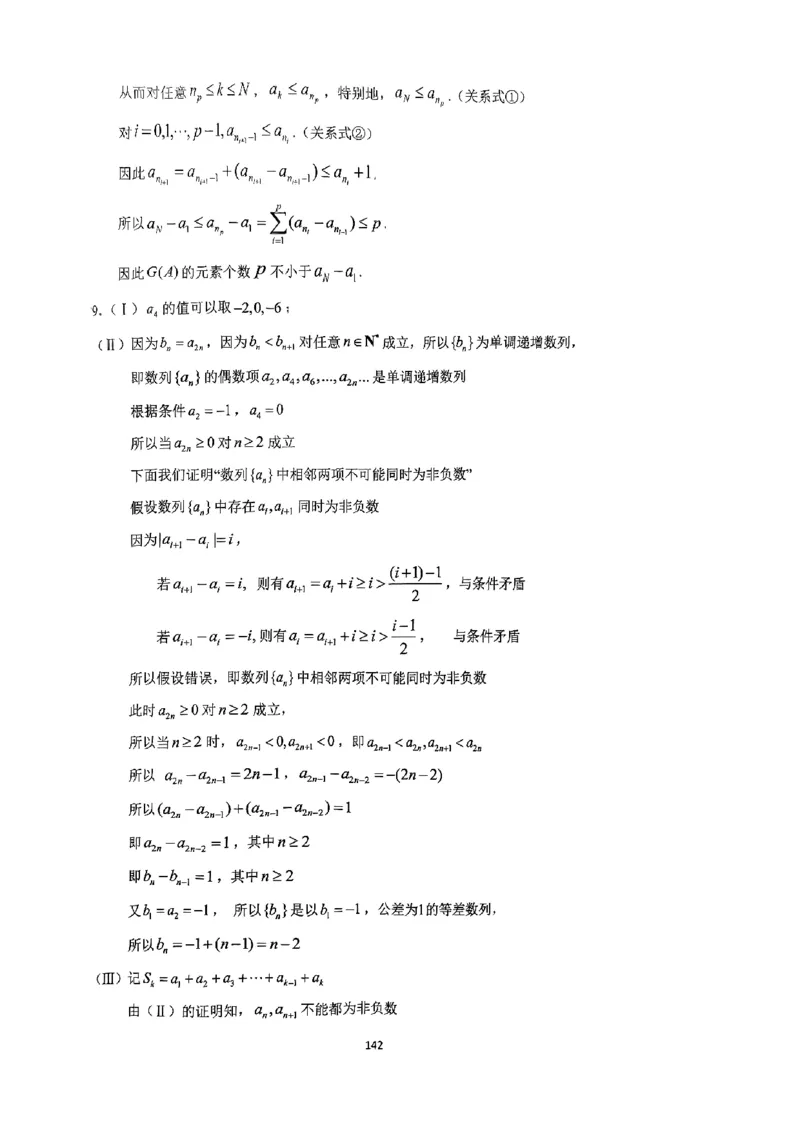 从而对任意 n_p ≤ k ≤ N，a_k ≤ a_{n_p}，特别地，a_N ≤ a_{n_p}.（关系式①）
对 i=0,1,⋯,p−1, a_{n_{i+1}−1} ≤ a_{n_i}.（关系式②）
因此 a_{n_{i+1}} = a_{n_{i+1}−1} + (a_{n_{i+1}} − a_{n_{i+1}−1}) ≤ a_{n_i} + 1.
所以 a_N − a_1 ≤ a_{n_p} − a_1 = ∑_{i=1}^{p} (a_{n_i} − a_{n_{i−1}}) ≤ p.
因此 G(A) 的元素个数 p 不小于 a_N − a_1.
9.（Ⅰ）a_4 的值可以取 −2,0,−6；
（Ⅱ）因为 b_n = a_{2n}，因为 b_n < b_{n+1} 对任意 n∈N* 成立，所以{b_n}为单调递增数列，
即数列{a_n}的偶数项 a_2,a_4,a_6,...,a_{2n}... 是单调递增数列
根据条件 a_2 = −1，a_4 = 0
所以当 a_{2n} ≥ 0 对 n ≥ 2 成立
下面我们证明“数列{a_n}中相邻两项不可能同时为非负数”
假设数列{a_n}中存在 a_i,a_{i+1} 同时为非负数
因为|a_{i+1} − a_i| = i，
若 a_{i+1} − a_i = i, 则有 a_{i+1} = a_i + i ≥ i > \frac{(i+1)−1}{2}，与条件矛盾
若 a_{i+1} − a_i = −i, 则有 a_i = a_{i+1} + i ≥ i > \frac{i−1}{2}， 与条件矛盾
所以假设错误，即数列{a_n}中相邻两项不可能同时为非负数
此时 a_{2n} ≥ 0 对 n ≥ 2 成立，
所以当 n ≥ 2 时，a_{2n−1} < 0, a_{2n+1} < 0，即 a_{2n−1} < a_{2n}, a_{2n+1} < a_{2n}
所以 a_{2n} − a_{2n−1} = 2n−1，a_{2n−1} − a_{2n−2} = −(2n−2)
所以 (a_{2n} − a_{2n−1}) + (a_{2n−1} − a_{2n−2}) = 1
即 a_{2n} − a_{2n−2} = 1，其中 n ≥ 2
即 b_n − b_{n−1} = 1，其中 n ≥ 2
又 b_1 = a_2 = −1， 所以{b_n}是以 b_1 = −1，公差为1的等差数列，
所以 b_n = −1 + (n−1) = n−2
（Ⅲ）记 S_k = a_1 + a_2 + a_3 + ⋯ + a_{k−1} + a_k
由（Ⅱ）的证明知，a_n,a_{n+1} 不能都为非负数
142